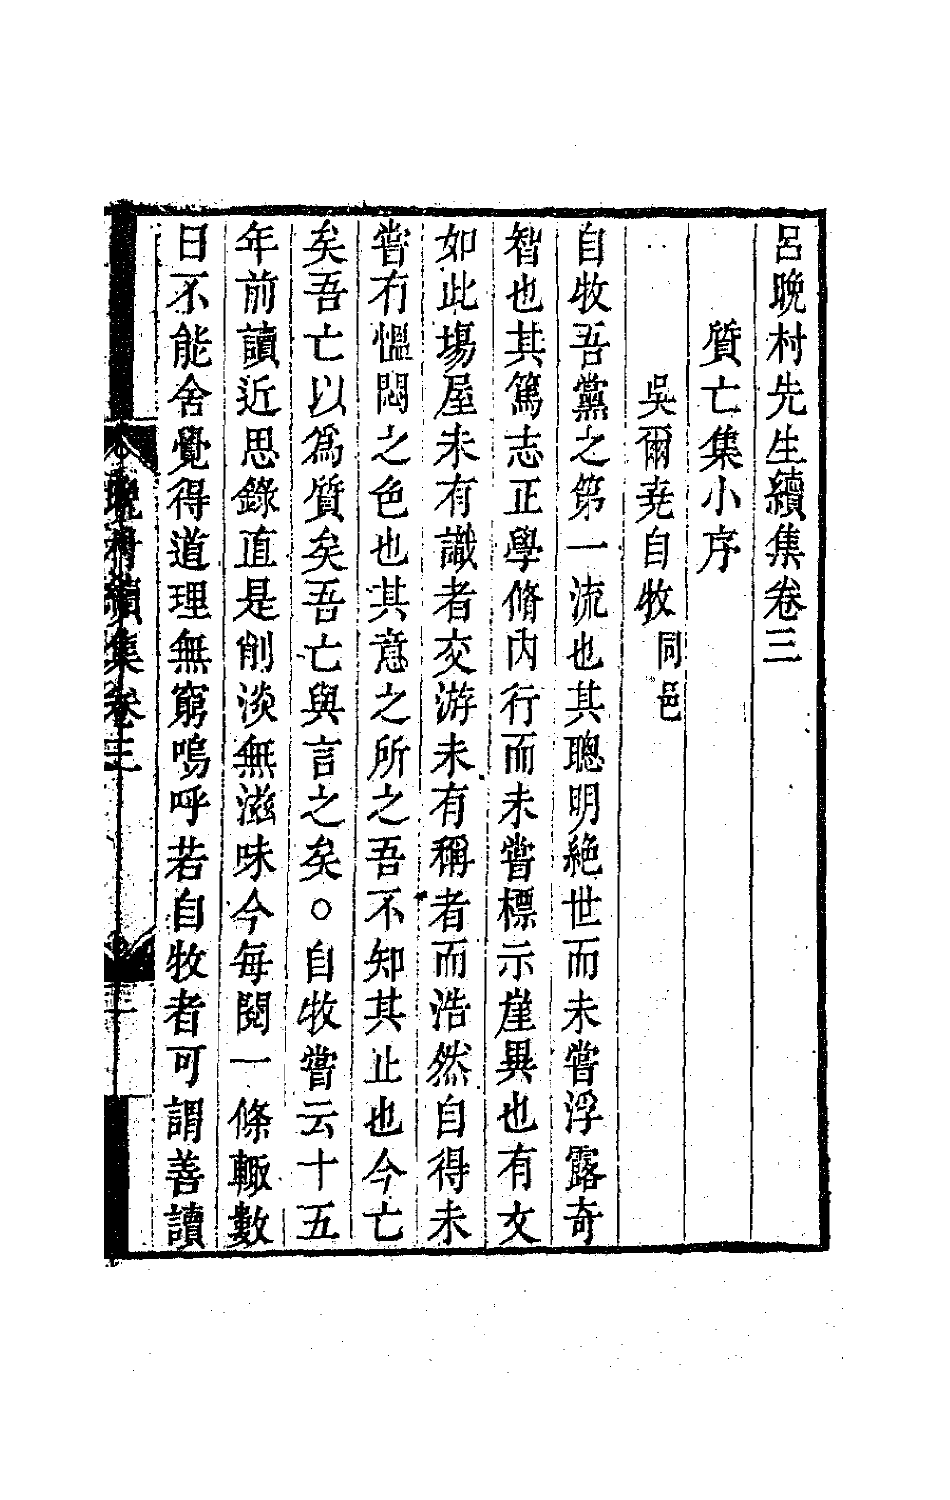 呂晚村先生續集卷三
質亡集小序
吳爾堯自牧同邑
自牧吾黨之第一流也其聰明絶世而未嘗浮露奇
智也其篤志正學脩內行而未嘗標示崖異也有文
如此場屋未有識者交游未有稱者而浩然自得未
嘗有慍悶之色也其意之所之吾不知其止也今亡
矣吾亡以爲質矣吾亡與言之矣○自牧嘗云十五
年前讀近思錄直是削淡無滋味今每閱一條輒數
日不能舍覺得道理無窮嗚呼若自牧者可謂善讀
晚村續集卷三
一